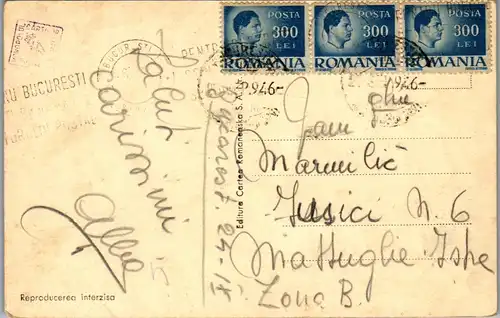 POSTA
300
LEI
ROMANIA
POSTA
300
LEI
ROMANIA
POSTA
300
LEI
ROMANIA
BUCURESTI
PENTRU
RU BUCURESTI
POSTAL
946-
Saluti
Carissimi
Alba
Bucarest. 24-IX
Editura Cartea Romaneasca S. A.
Fam
Marmilić
Jusici N. 6
Mattuglie Istre
Zona B.
Reproducerea interzisa